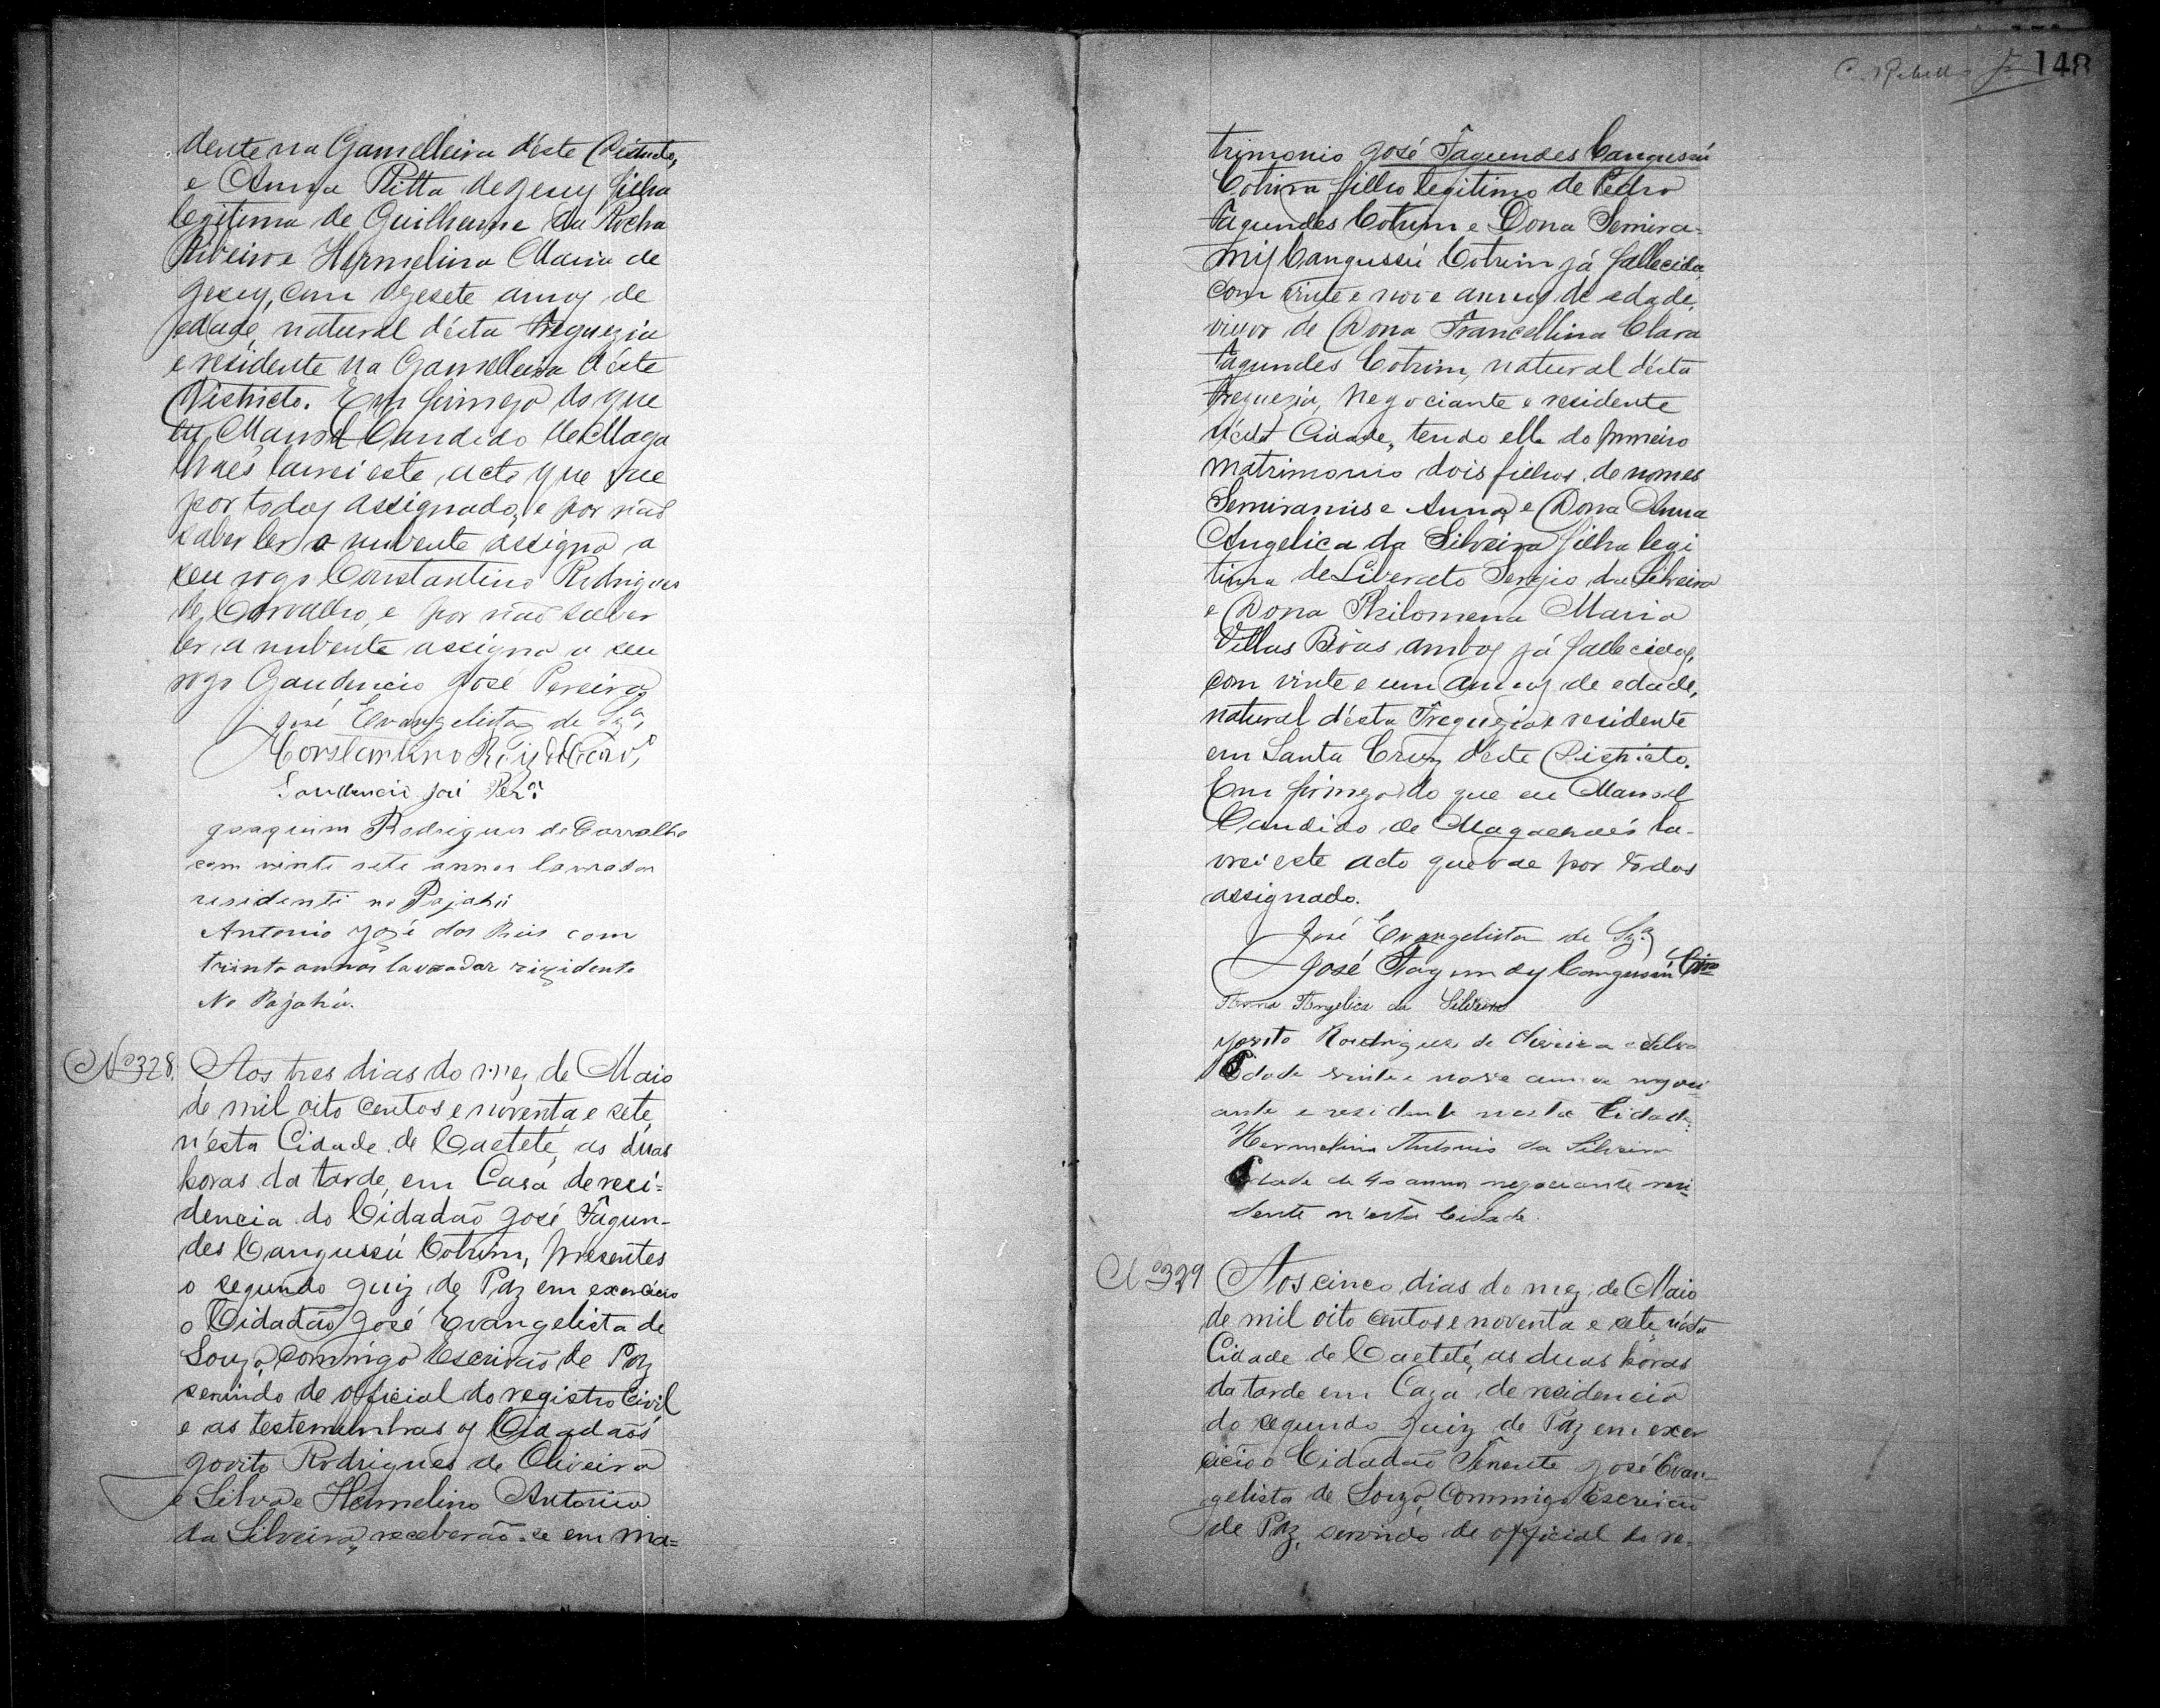 dente na Gamelleira d'éste Districto,
e Anna Ritta de Jesuz, filha
legitima de Guilherme da Rocha
Ribeiro e Hermelina Maria de
Jesuz, com dezesete annos de
edade, natural d'ésta Freguezia
e residente na Gamelleira d'éste
Districto. Em firmeza do que
eu Manoel Candido de Maga
lhaẽs lavrei este acto que vae
por todos assignado, e por não
saber ler o nubente assigna a
seu rogo Constantino Rodrigues
de Carvalho, e por não saber
ler a nubente assigna a seu
rogo Gaudencio José Pereira
José Evangelista de Sz.ª
Constantino Roiz de Carv.º
Gaudencio José Per.ª
Joaquim Rodrigues de Carvalho
com vinte sete annos lavrador
residente no Pajahú
Antonio José dos Reis com
trinta annos lavrador rizidente
No Pajahú.
Nº 328. Aos tres dias do mez de Maio
de mil oito centos e noventa e sete,
n'ésta Cidade de Caeteté, as duas
horas da tarde, em Casa de resi=
dencia do Cidadão José Fagun-
des Cangussú Cotrim, presentes
o segundo Juiz de Paz em exercicio
o Cidadão José Evangelista de
Souza, commigo Escrivão de Paz
servindo de official do registro Civil
e as testemunhas os Cidadaõs
Jovito Rodrigues de Oliveira
e Silva e Hermelino Antonio
da Silveira, receberão-se em ma=
148
trimonio José Fagundes Cangussú
Cotrim filho legitimo de Pedro
Fagundes Cotrim e Dona Semira=
mis Cangussú Cotrim já fallecida,
com vinte e nove annos de edade,
viuvo de Dona Francellina Clara
Fagundes Cotrim, natural d'ésta
Freguezia, negociante e residente
n'ésta Cidade, tendo elle do primeiro
matrimonio dois filhos de nomes
Semiramis e Anna, e Dona Anna
Angelica da Silveira filha legi
tima de Liberato Sergio da Silveira
e Dona Philomena Maria
Villas Bôas ambos já fallecidos,
com vinte e um annos de edade,
natural d'ésta Freguezia e residente
em Santa Cruz d'éste Districto.
Em firmeza do que eu Manoel
Candido de Magalhaẽs la-
vrei este acto que vae por todos
assignado.
José Evangelista de Sz.ª
José Fagundes Cangussú
Anna Angelica da Silveira
Jovito Rodrigues de Oliveira e Silva
Edade vinte e nove annos negoci
ante e residente nesta Cidade.
Hermelino Antonio da Silveira
Edade de 40 annos negociante resi-
dente n'esta Cidade.
Nº 329 Aos cinco dias do mez de Maio
de mil oito centos e noventa e sete n'ésta
Cidade de Caeteté, as duas horas
da tarde em Caza de residencia
do segundo Juiz de Paz em exer
cicio o Cidadão Tenente José Evan-
gelista de Souza, commigo Escrivão
de Paz, servindo de official do re-